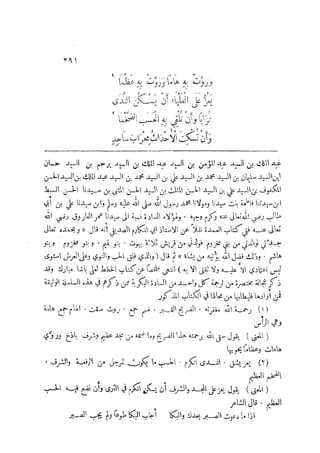 ٣٩١
وروت به هاما وروت به عظما ١
يعز على العلياء أن يسكن الثرى
ترابا وأن تلقى به الحسب الضخما ٢
وأن تسكت الأحداث محراب ساجد
عبد الملك بن السيد عبد المؤمن بن السيد عبد الملك بن السيد يرحم بن السيد حسان
ابن السيد سليمان بن السيد محمد بن السيد علي بن السيد محمد بن السيد عبد الملك بن السيد الحسن
المكفوف بن السيد علي بن السيد الحسن المثلث بن السيد الحسن المثنى بن سيدنا الحسن السبط
ابن سيدتنا فاطمة بنت سيدنا ومولانا محمد رسول الله صلى الله عليه وسلم وابن سيدنا علي بن أبي
طالب رضي الله تعالى عنه وكرم وجهه . ولهؤلاء السادة نسبة إلى سيدنا عمر الفاروق رضي الله
تعالى عنه في كتاب العمدة نقلا عن الأستاذ أبي المكارم الصديقي أنه قال : وبحمده تعالى
جدتي لوالدي من بني مخزوم فولدني من قريش ثلاثة بيوت . بنو تيم . وبنو مخزوم . وبنو
هاشم . وذلك فضل الله يؤتيه من يشاء ثم قال : والذي فلق الحب والنوى وعلى العرش استوى
ليس اعتمادي الا عليه ولا ثقتي الا به . انتهى ملخصا عن كتاب الخطط لعلي باشا مبارك وقد
ذكر ثمالة مختصرة من ترجمة كل واحد من السادة البكرية ممن ذكرهم في هذه السلسلة الوثيقة
فمن أرادها فليطلبها من محلها في الكتاب المذكور
(١) رحمة الله مغفرته . الضريح القبر . ضم جمع . روت سقت . الهام جمع هامة
وهي الرأس
(المعنى) يقول سقى الله برحمته هذا الضريح وما ضمه من مجد عظيم وشرف باذخ وروى
هامات وعظاما يحويها
(٢) يعز يشق . الندى الكرم . الحسب ما يكون للرجل من الرفعة والشرف .
الضخم العظيم
(المعنى) يقول يعز على المجد والشرف أن يسكن الكرم في الثرى وأن تضع فيه الحسب
العظيم . قال الشاعر
اذا ما دعوت الصبر بعدك والبكا أجاب البكا طوعا ولم يجب الصبر